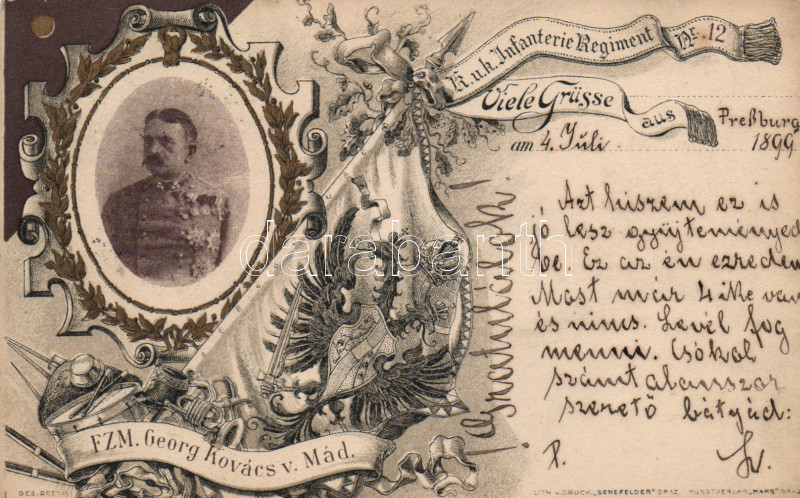 K. u. k. Infanterie Regiment Nr. 12
Viele Grüsse aus Preßburg
am 4. Juli 1899
Gratulálok!
Azt hiszem ez is
jó lesz gyüjteményed
be. Ez az én ezredem
Most már 4 ike van
és nincs. Levél fog
menni. Csókol
számtalanszor
szerető bátyád:
P.
FZM. Georg Kovács v. Mád.
darabanth
LITH. u. DRUCK. „SENEFELDER" GRAZ. KUNSTVERLAG „MARS"